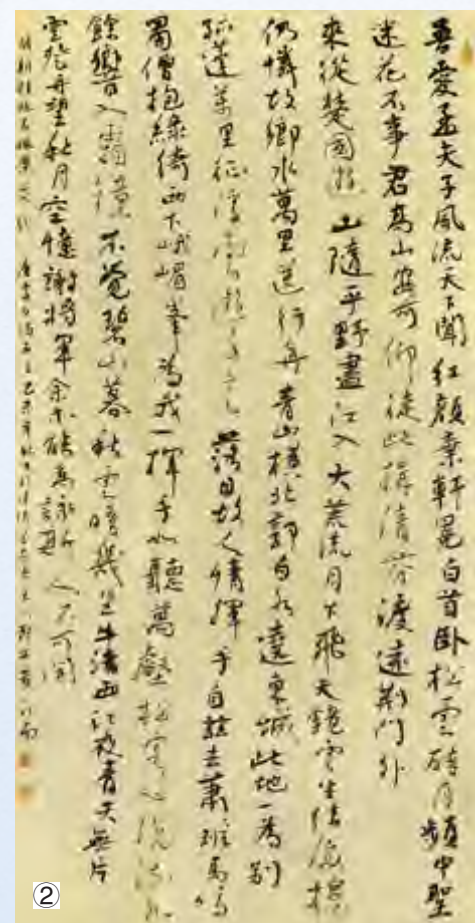 吾愛孟夫子風流天下聞紅顏棄軒冕白首卧松雲醉月頻中聖
迷花不事君高山安可仰徒此揖清芬渡遠荊門外
來從楚國遊山隨平野盡江入大荒流月下飛天鏡雲生結海樓
仍憐故鄉水萬里送行舟青山橫北郭白水遶東城此地一為別
孤蓬萬里征浮雲遊子意落日故人情揮手自茲去蕭班馬鳴
蜀僧抱綠綺西下峨嵋峯為我一揮手如聽萬壑松客心洗流水
餘響入霜鐘不覺碧山暮秋雲暗幾重牛渚西江夜青天無片
雲登舟望秋月空憶謝將軍余亦能高詠斯人不可聞
②